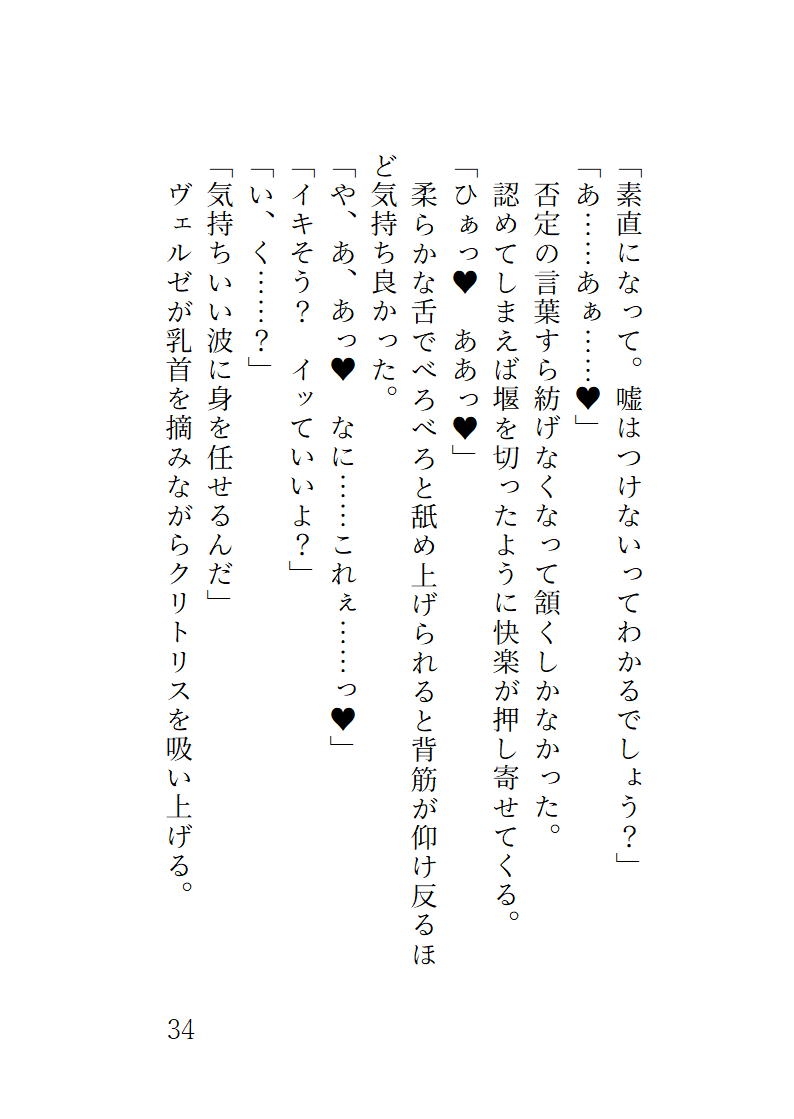 「素直になって。嘘はつけないってわかるでしょう？」
「あ……あぁ……♥」
　否定の言葉すら紡げなくなって頷くしかなかった。
　認めてしまえば堰を切ったように快楽が押し寄せてくる。
「ひぁっ♥　ああっ♥」
　柔らかな舌でべろべろと舐め上げられると背筋が仰け反るほ
ど気持ち良かった。
「や、あ、あっ♥　なに……これぇ……っ♥」
「イキそう？　イッていいよ？」
「い、く……？」
「気持ちいい波に身を任せるんだ」
　ヴェルゼが乳首を摘みながらクリトリスを吸い上げる。
34